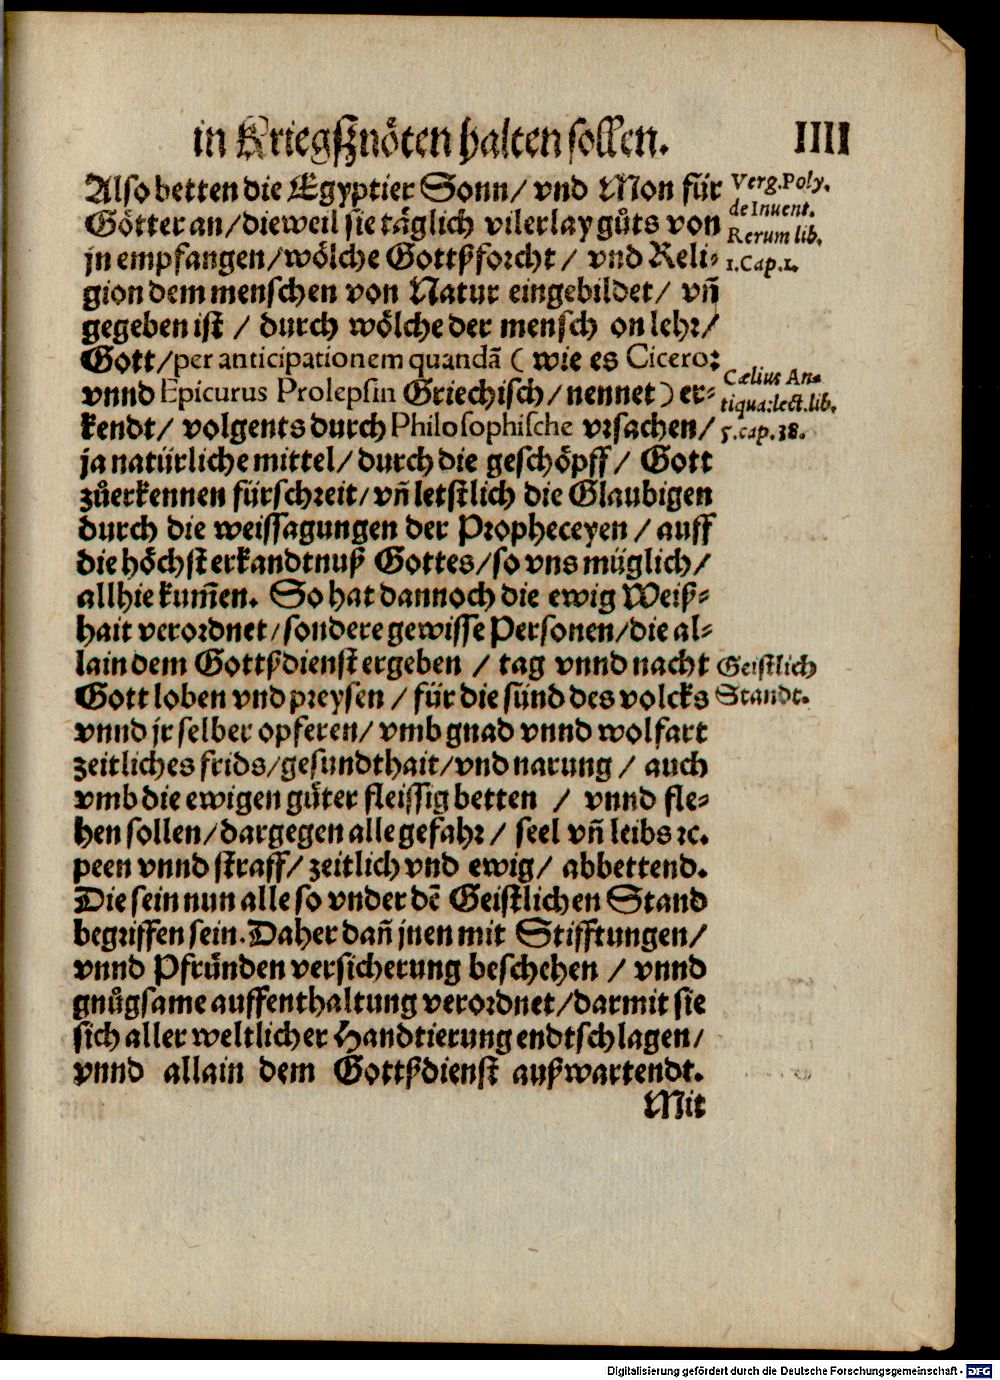 in Kriegßnöten halten sollen. IIII
Also betten die Egyptier Sonn/ vnd Mon für
Götter an/ dieweil sie täglich vilerlay gůts von
jn empfangen/ wölche Gottßforcht/ vnd Reli-
gion dem menschen von Natur eingebildet/ vñ
gegeben ist / durch wölche der mensch on lehr/
Gott/ per anticipationem quandã ( wie es Cicero:
vnnd Epicurus Prolepsin Griechisch/ nennet) er-
kendt/ volgents durch Philosophische vrsachen/
ja natürliche mittel/ durch die geschöpff/ Gott
zůerkennen fürschreit/ vñ letstlich die Glaubigen
durch die weissagungen der Propheceyen / auff
die höchst erkandtnuß Gottes/ so vns müglich/
allhie kum̃en. So hat dannoch die ewig Weiß-
hait verordnet/ sondere gewisse Personen/ die al-
lain dem Gottßdienst ergeben / tag vnnd nacht
Gott loben vnd preysen / für die sünd des volcks
vnnd jr selber opferen/ vmb gnad vnnd wolfart
zeitliches frids/ gesundthait/ vnd narung / auch
vmb die ewigen güter fleissig betten / vnnd fle-
hen sollen/ dargegen alle gefahr/ seel vñ leibs ꝛc.
peen vnnd straff/ zeitlich vnd ewig/ abbettend.
Die sein nun alle so vnder dẽ Geistlichen Stand
begriffen sein. Daher dañ jnen mit Stifftungen/
vnnd Pfründen versicherung beschehen / vnnd
gnůgsame auffenthaltung verordnet/ darmit sie
sich aller weltlicher Handtierung endtschlagen/
vnnd allain dem Gottßdienst außwartendt.
Mit
Verg. Poly.
de Inuent.
Rerum lib.
1. Cap. 1.
Cælius An-
tiqua: lect. lib.
5. cap. 38.
Geistlich
Standt.
Digitalisierung gefördert durch die Deutsche Forschungsgemeinschaft - DFG